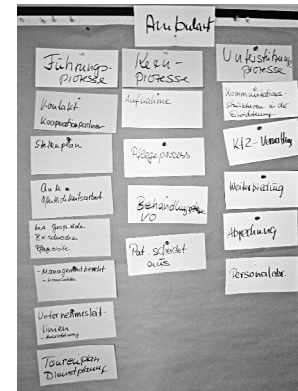 Ambulant
Führungs-
prozesse
Kontakt
Kooperationspartner
Stellenplan
Öffentlichkeitsarbeit
- Managementbericht
Unternehmensleit-
linien
Tourenplan
Dienstplanung
Kern-
prozesse
Aufnahme
Pflegeprozess
VO
Pat. scheidet
aus
Unterstützungs-
prozesse
Kommunikations-
strukturen in der
Einrichtung
KFZ-Verwaltung
Weiterbildung
Abrechnung
Personalabr.